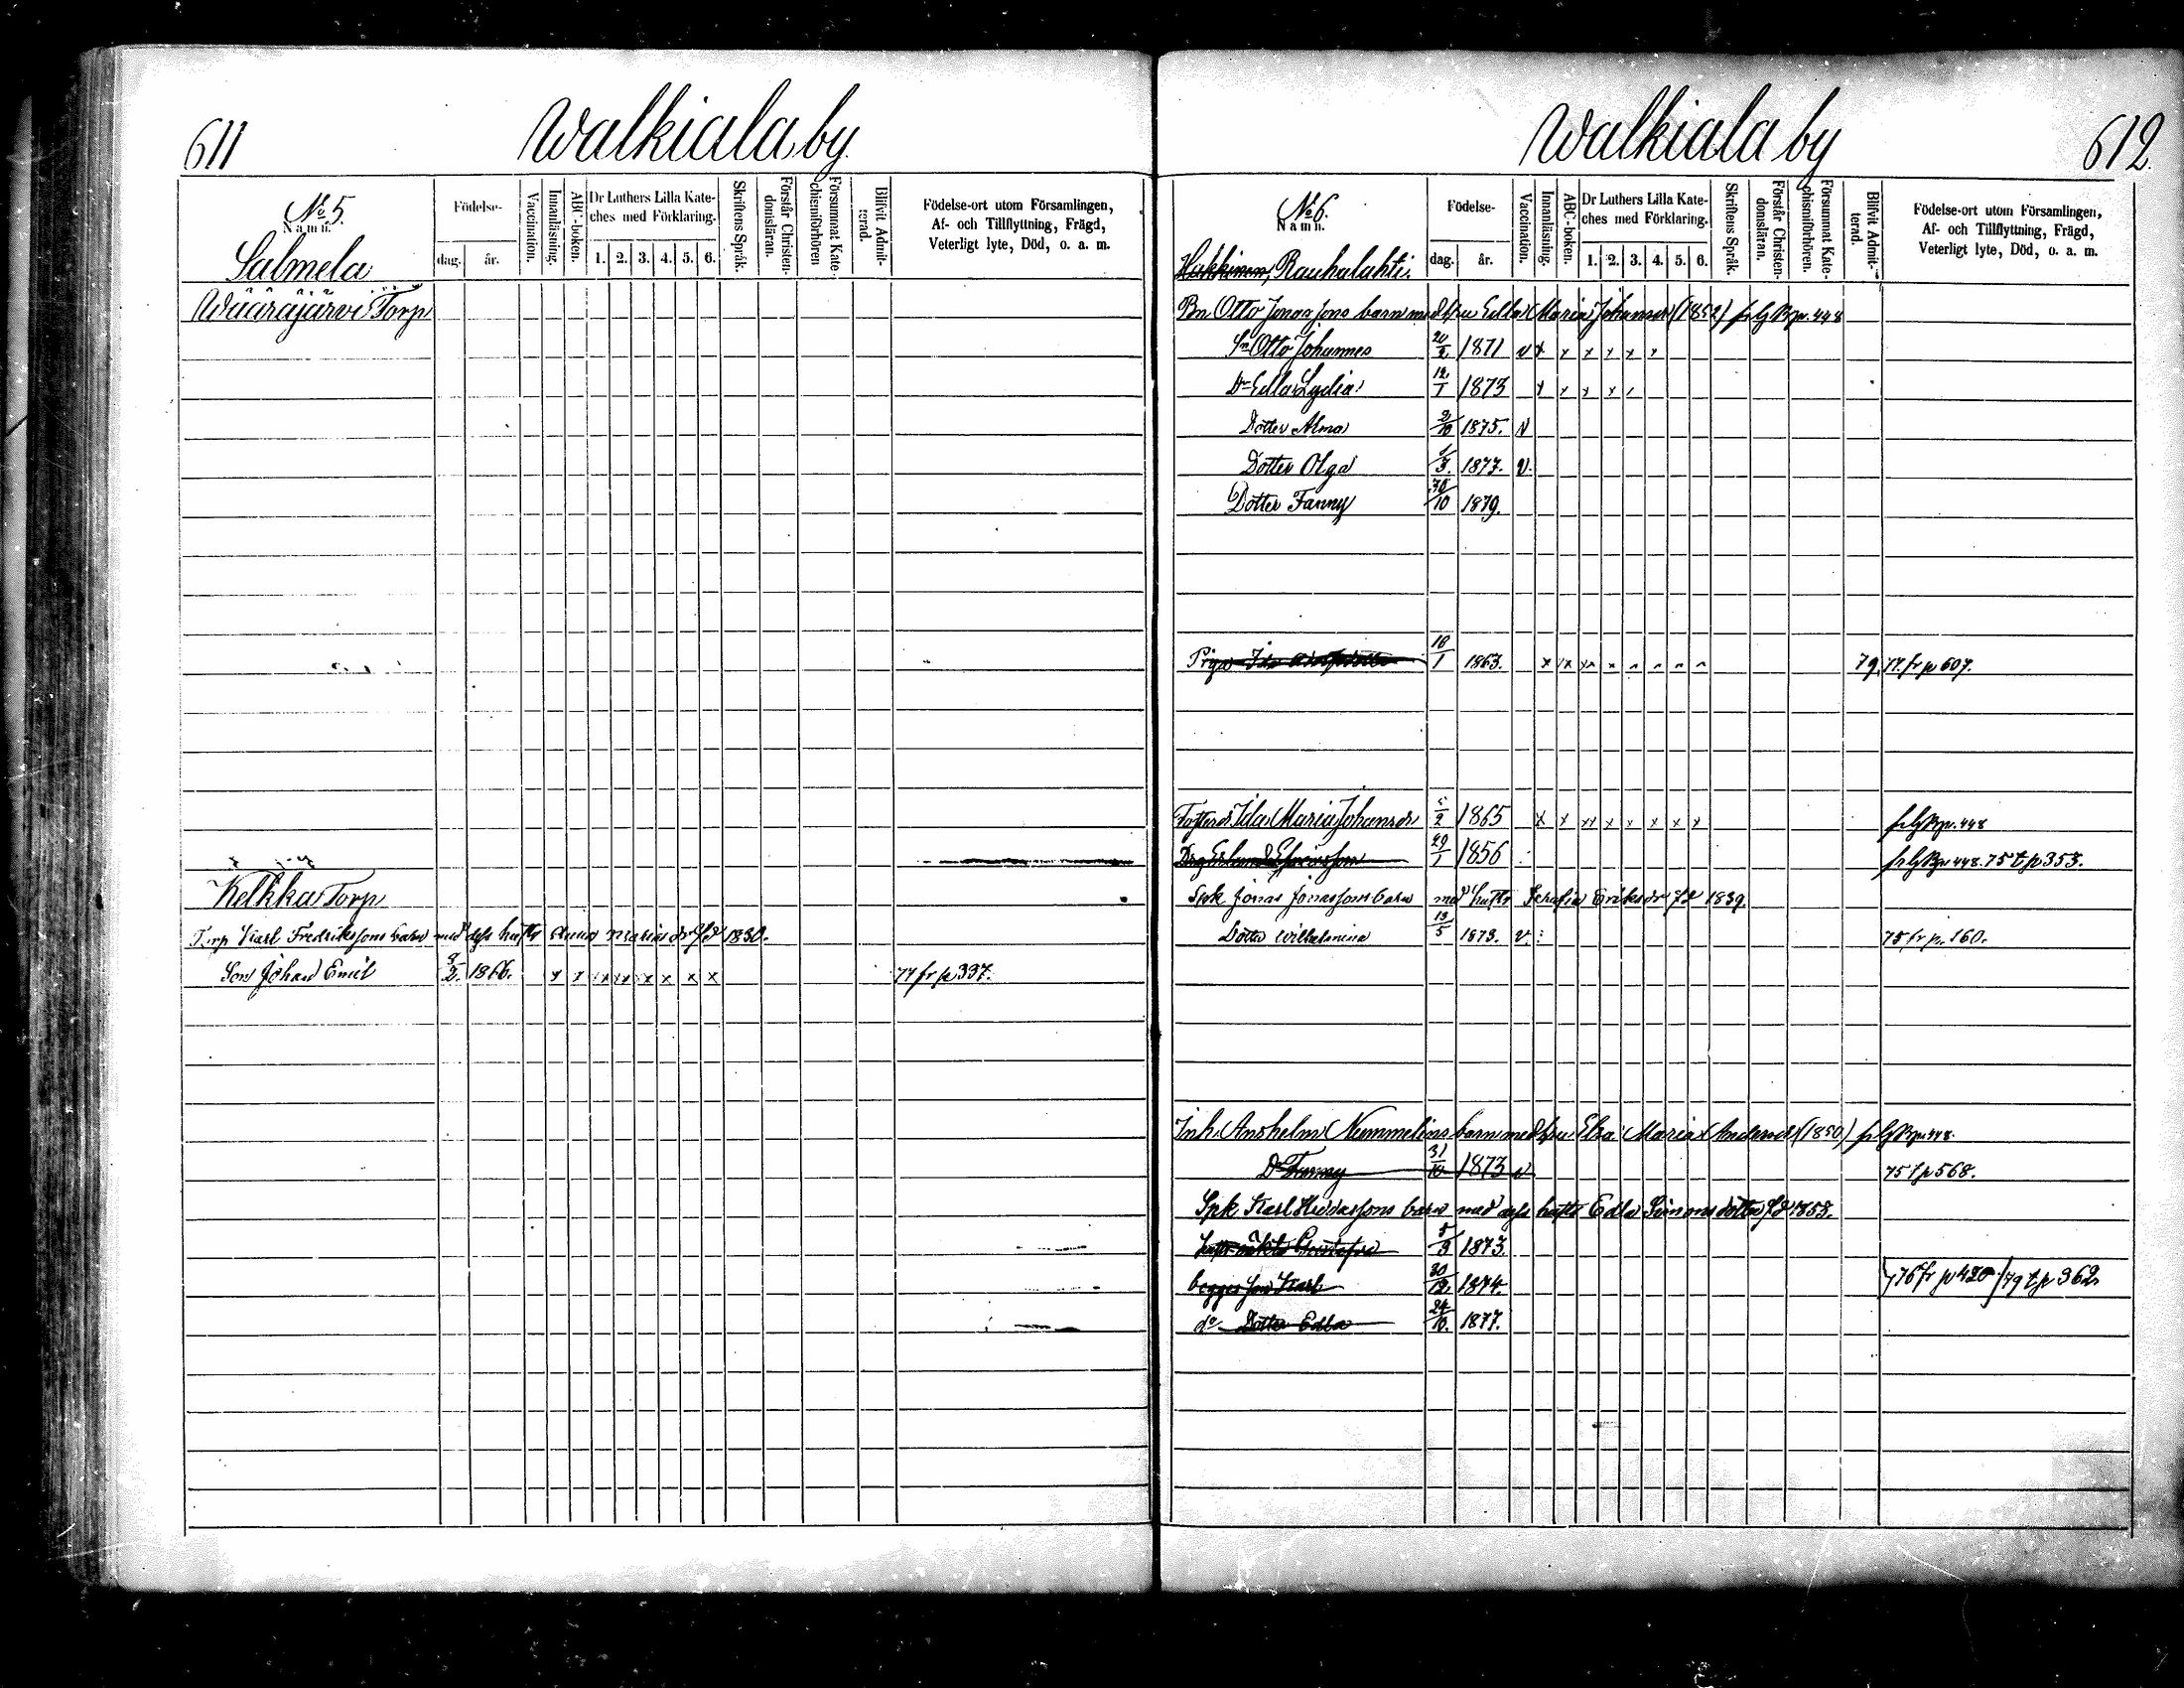 611
Walkiala by
No 5.
Namn.
Salmela
Födelse-
dag. år.
Vaccination.
Innanläsning.
ABC-boken.
Dr Luthers Lilla Kate-
ches med Förklaring.
1. 2. 3. 4. 5. 6.
Skriftens Språk.
Förstår Christen-
domsläran.
Försummat Kate-
chismiförhören
Blifvit Admit-
terad.
Födelse-ort utom Församlingen,
Af- och Tillflyttning, Frägd,
Veterligt lyte, Död, o. a. m.
Wääräjärvi Torp
Kelkka Torp
Torp Karl Fredrikssons barn med dess hustr Anna Mariasdr fd 1830.
Son Johan Emil 8/2. 1866. x x x xx x x x x 77 fr p 337.
Walkiala by
612
No 6.
Namn.
Hakkinen, Rauhalahti.
Födelse-
dag. år.
Vaccination.
Innanläsning.
ABC-boken.
Dr Luthers Lilla Kate-
ches med Förklaring.
1. 2. 3. 4. 5. 6.
Skriftens Språk.
Förstår Christen-
domsläran.
Försummat Kate-
chismiförhören.
Blifvit Admit-
terad.
Födelse-ort utom Församlingen,
Af- och Tillflyttning, Frägd,
Veterligt lyte, Död, o. a. m.
Bn Otto Jonas sons barn med hu Edla Maria Johansdr (1852) fr p. 448
Sn Otto Johannes 20/2 1871 v x x x x x x
Dr Edla Lydia 12/1 1873 x x x x
Dotter Alma 2/10 1875. v
Dotter Olga 1/3. 1877. v.
Dotter Fanny 30/10 1879.
Piga Ida 18/1 1863. x x x x 79. 77. fr p 607.
Fosterdr. Ida Maria Johansdr 5/2 1865 x x xx x x x x x fr p. 448
Drg Erland 29/1 1856 fr p 448. 75 t p 353.
Spk Jonas Jonassons barn med hustr Serafia Eriksdr fd 1839.
Dotter Wilhelmina 13/5 1873. v. 75 fr p. 160.
Inh. Anshelm Nummelins barn med hu Elsa Maria Andersdr (1850) fr p. 448.
Dr Fanny 31/10 1873 v 75 t p 568.
Spk Karl barn med dess hustr Edla Simonsdotter fd 1853.
Gustafva 5/3 1873.
begges son Karl 30/12. 1874. 76 fr p 420 / 79 t p 362
do Dotter Edla 24/10. 1877.